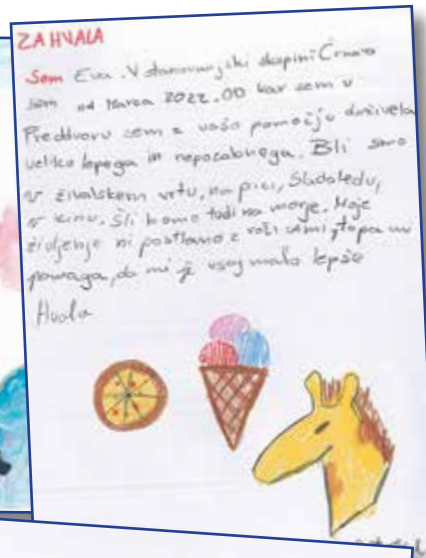 ZAHVALA
Sem Eva. V stanovanjski skupini Črnava
sem od marca 2022. OD kar sem v
Preddvoru sem z vašo pomočjo doživela
veliko lepega in nepozabnega. Bli smo
v živalskem vrtu, na pici, sladoledu,
v kinu, šli bomo tudi na morje. Moje
življenje ni postlano z rožicami, to pa mi
pomaga, da mi je vsaj malo lepše
Hvala